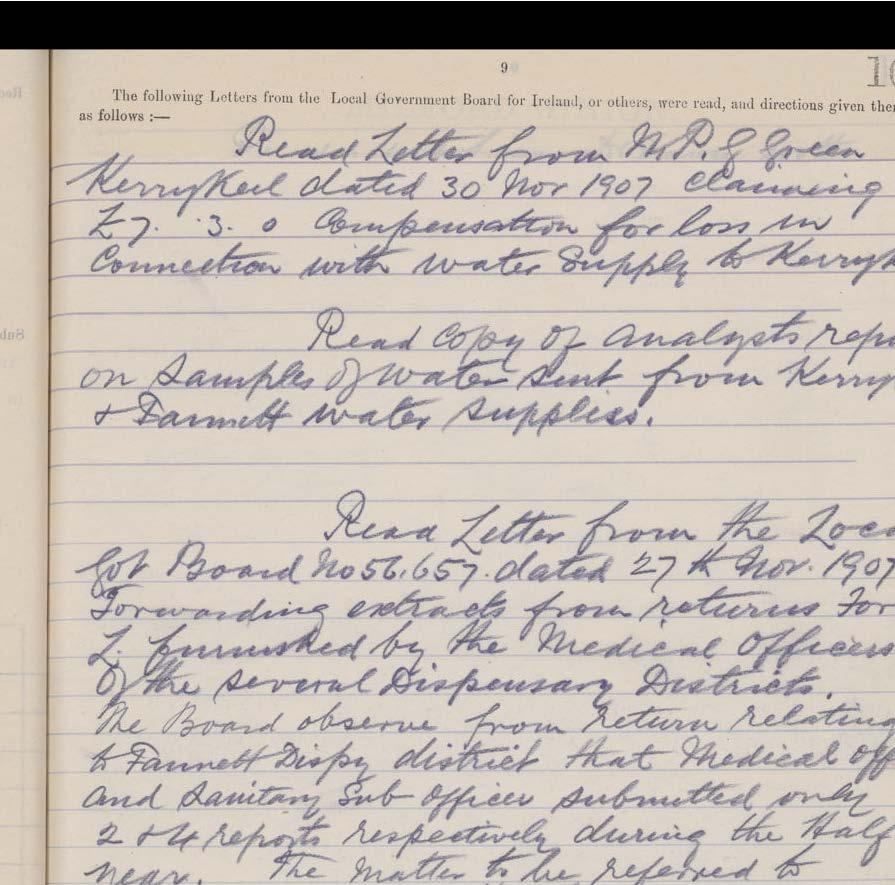 9
10
The following Letters from the Local Government Board for Ireland, or others, were read, and directions given
as follows :—
Read Letter from Mr P. G Green
KerryKeel dated 30 Nov 1907 Claiming
£7. .3. 0 Compensation for loss in
Connection with water Supply to
Read Copy of Analysts
on Samples of water sent from
& Fannett water supplies.
Read Letter from the
Gov Board No 56,657. dated 27th Nov. 1907
Forwarding extracts from returns
L. furnished by the Medical Officers
Of the several Dispensary Districts.
The Board observe from return relating
to Fannett Dispy district that Medical
and Sanitary Sub Officer submitted only
2 & 4 reports respectively during the Half
year. The matter to be referred to